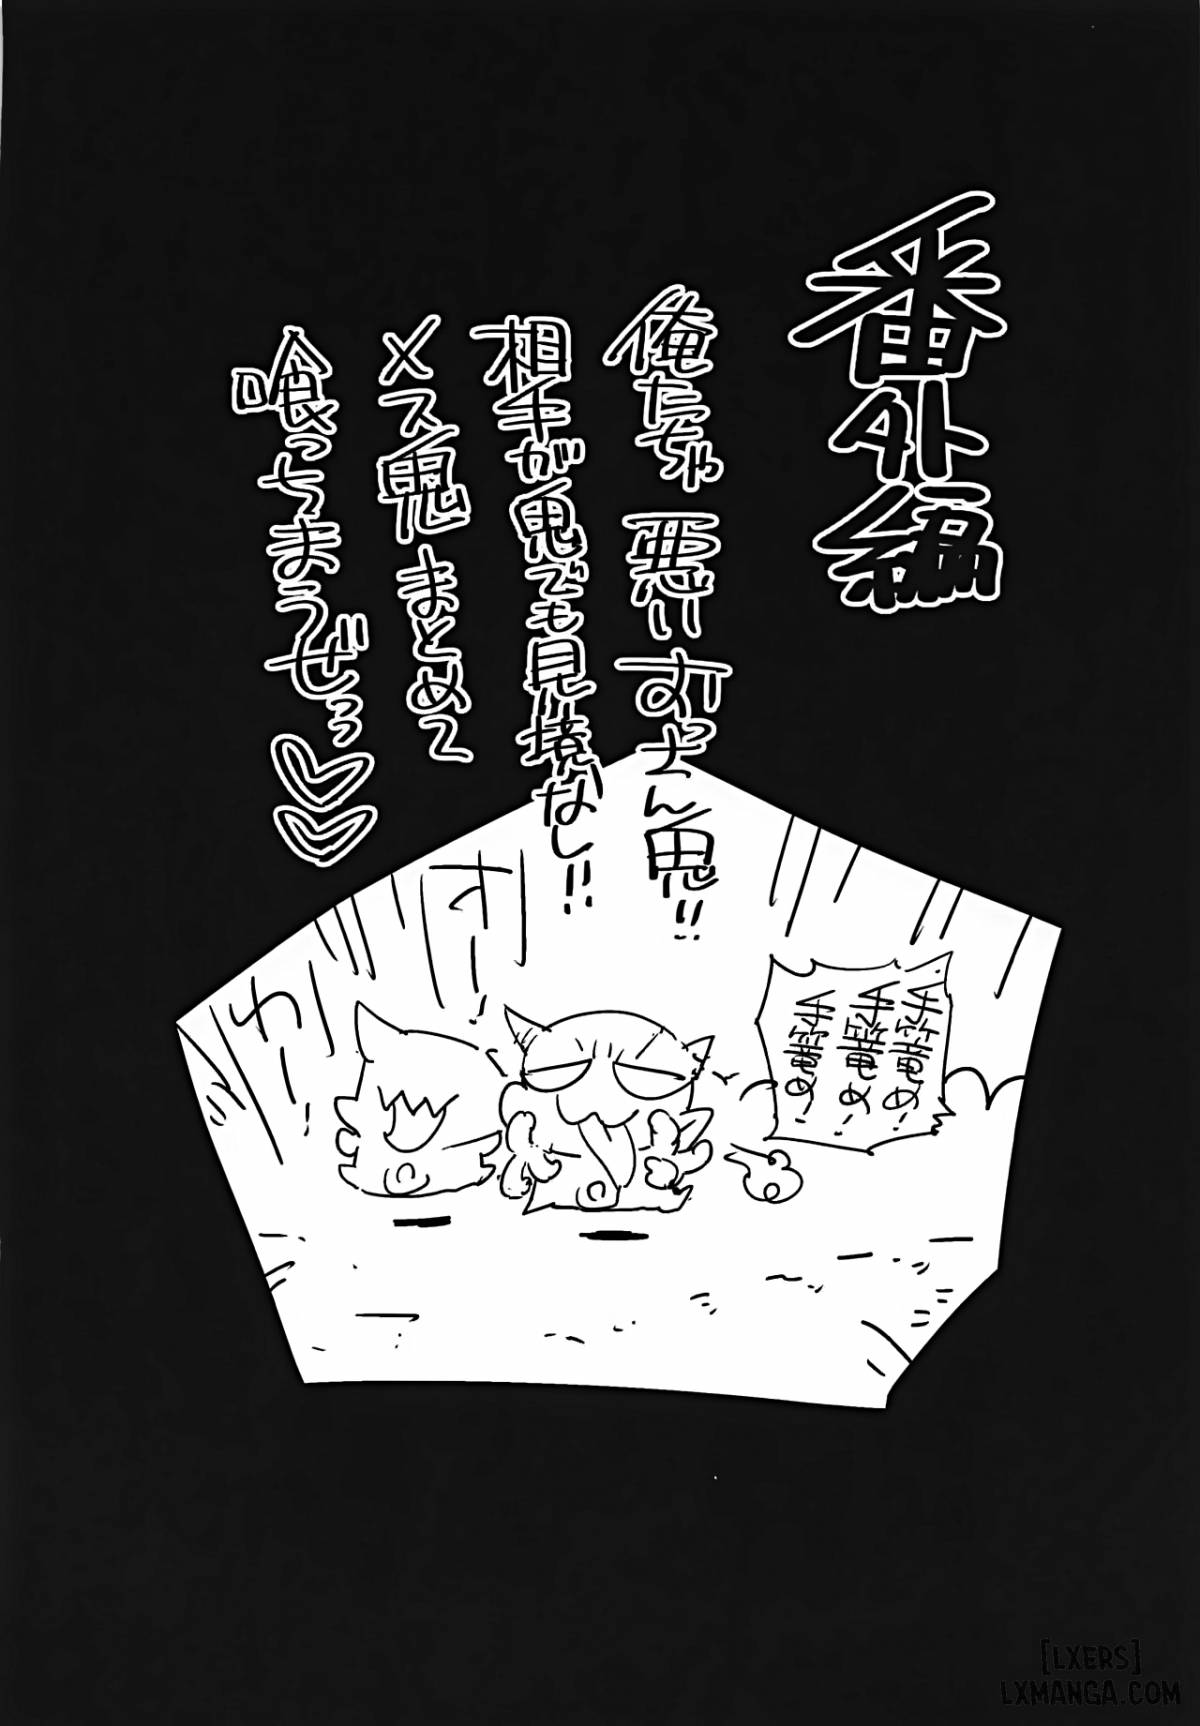 番外編
俺たちゃ悪いおっさん鬼!!
相手が鬼でも見境なし!!
メス鬼まとめて
喰っちまうぜっっ♡♡
手篭め!
手篭め!
手篭め!
すー!
わー!
[LXERS]
LXMANGA.COM